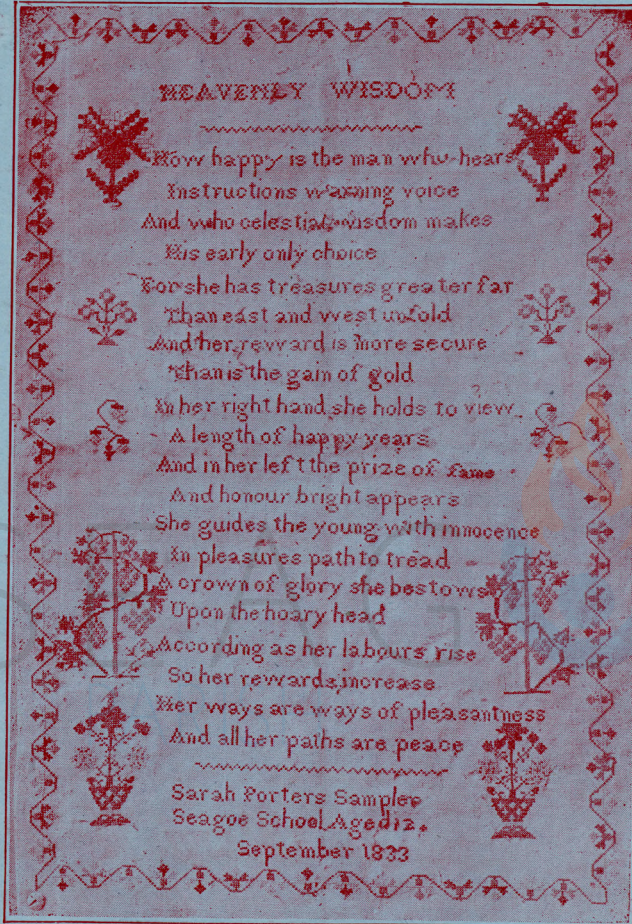 HEAVENLY WISDOM
How happy is the man who hears
Instructions warning voice
And who celestial wisdom makes
His early only choice
For she has treasures greater far
Than east and west unfold
And her reward is more secure
Than is the gain of gold
In her right hand she holds to view
A length of happy years
And in her left the prize of fame
And honour bright appears
She guides the young with innocence
In pleasures path to tread
A crown of glory she bestows
Upon the hoary head
According as her labours rise
So her rewards increase
Her ways are ways of pleasantness
And all her paths are peace
Sarah Porters Sampler
Seagoe School Aged 12.
September 1833